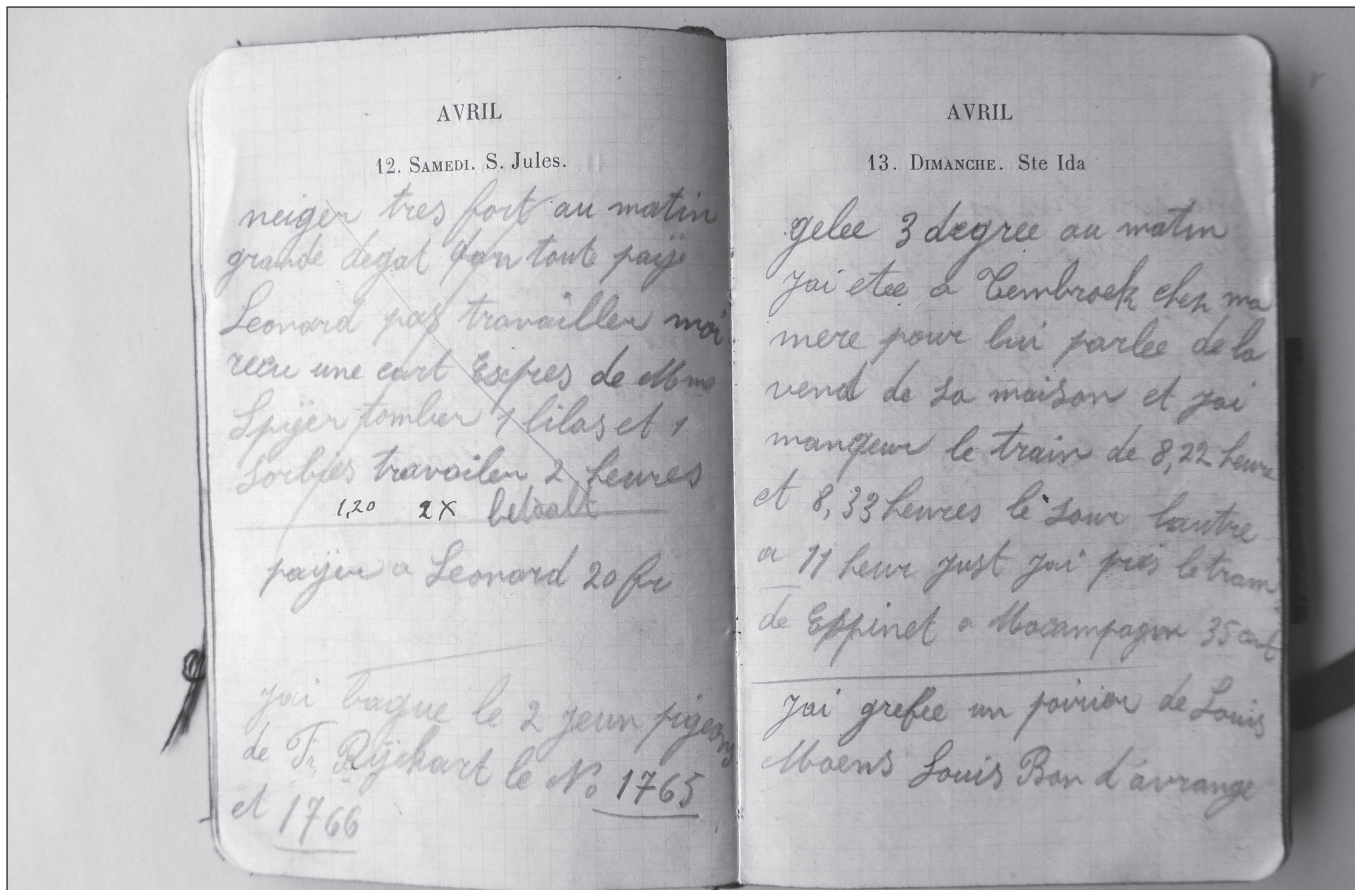 AVRIL
12. SAMEDI. S. Jules.
neiger tres fort au matin
grande degat dan toute payÿ
Leonard pas travailler moi
recu une cart Expres de Mme
Spÿer tomber 1 lilas et 1
sorbies travailer 2 heures
1,20 2X betaalt
payer a Leonard 20 fr
jai bague le 2 jeun pigeons
de Fr Rÿckart le No 1765
et 1766
AVRIL
13. DIMANCHE. Ste Ida
gelee 3 degree au matin
jai etee a Tembroek chez ma
mere pour lui parlee de la
vend de sa maison et jai
manqeur le train de 8,22 heure
et 8,33 heures le lautre
a 11 heur just jai pris le tram
de Eppinet a 35 cent
jai grefee un poirier de Louis
Moens Louis Bon d'avrange